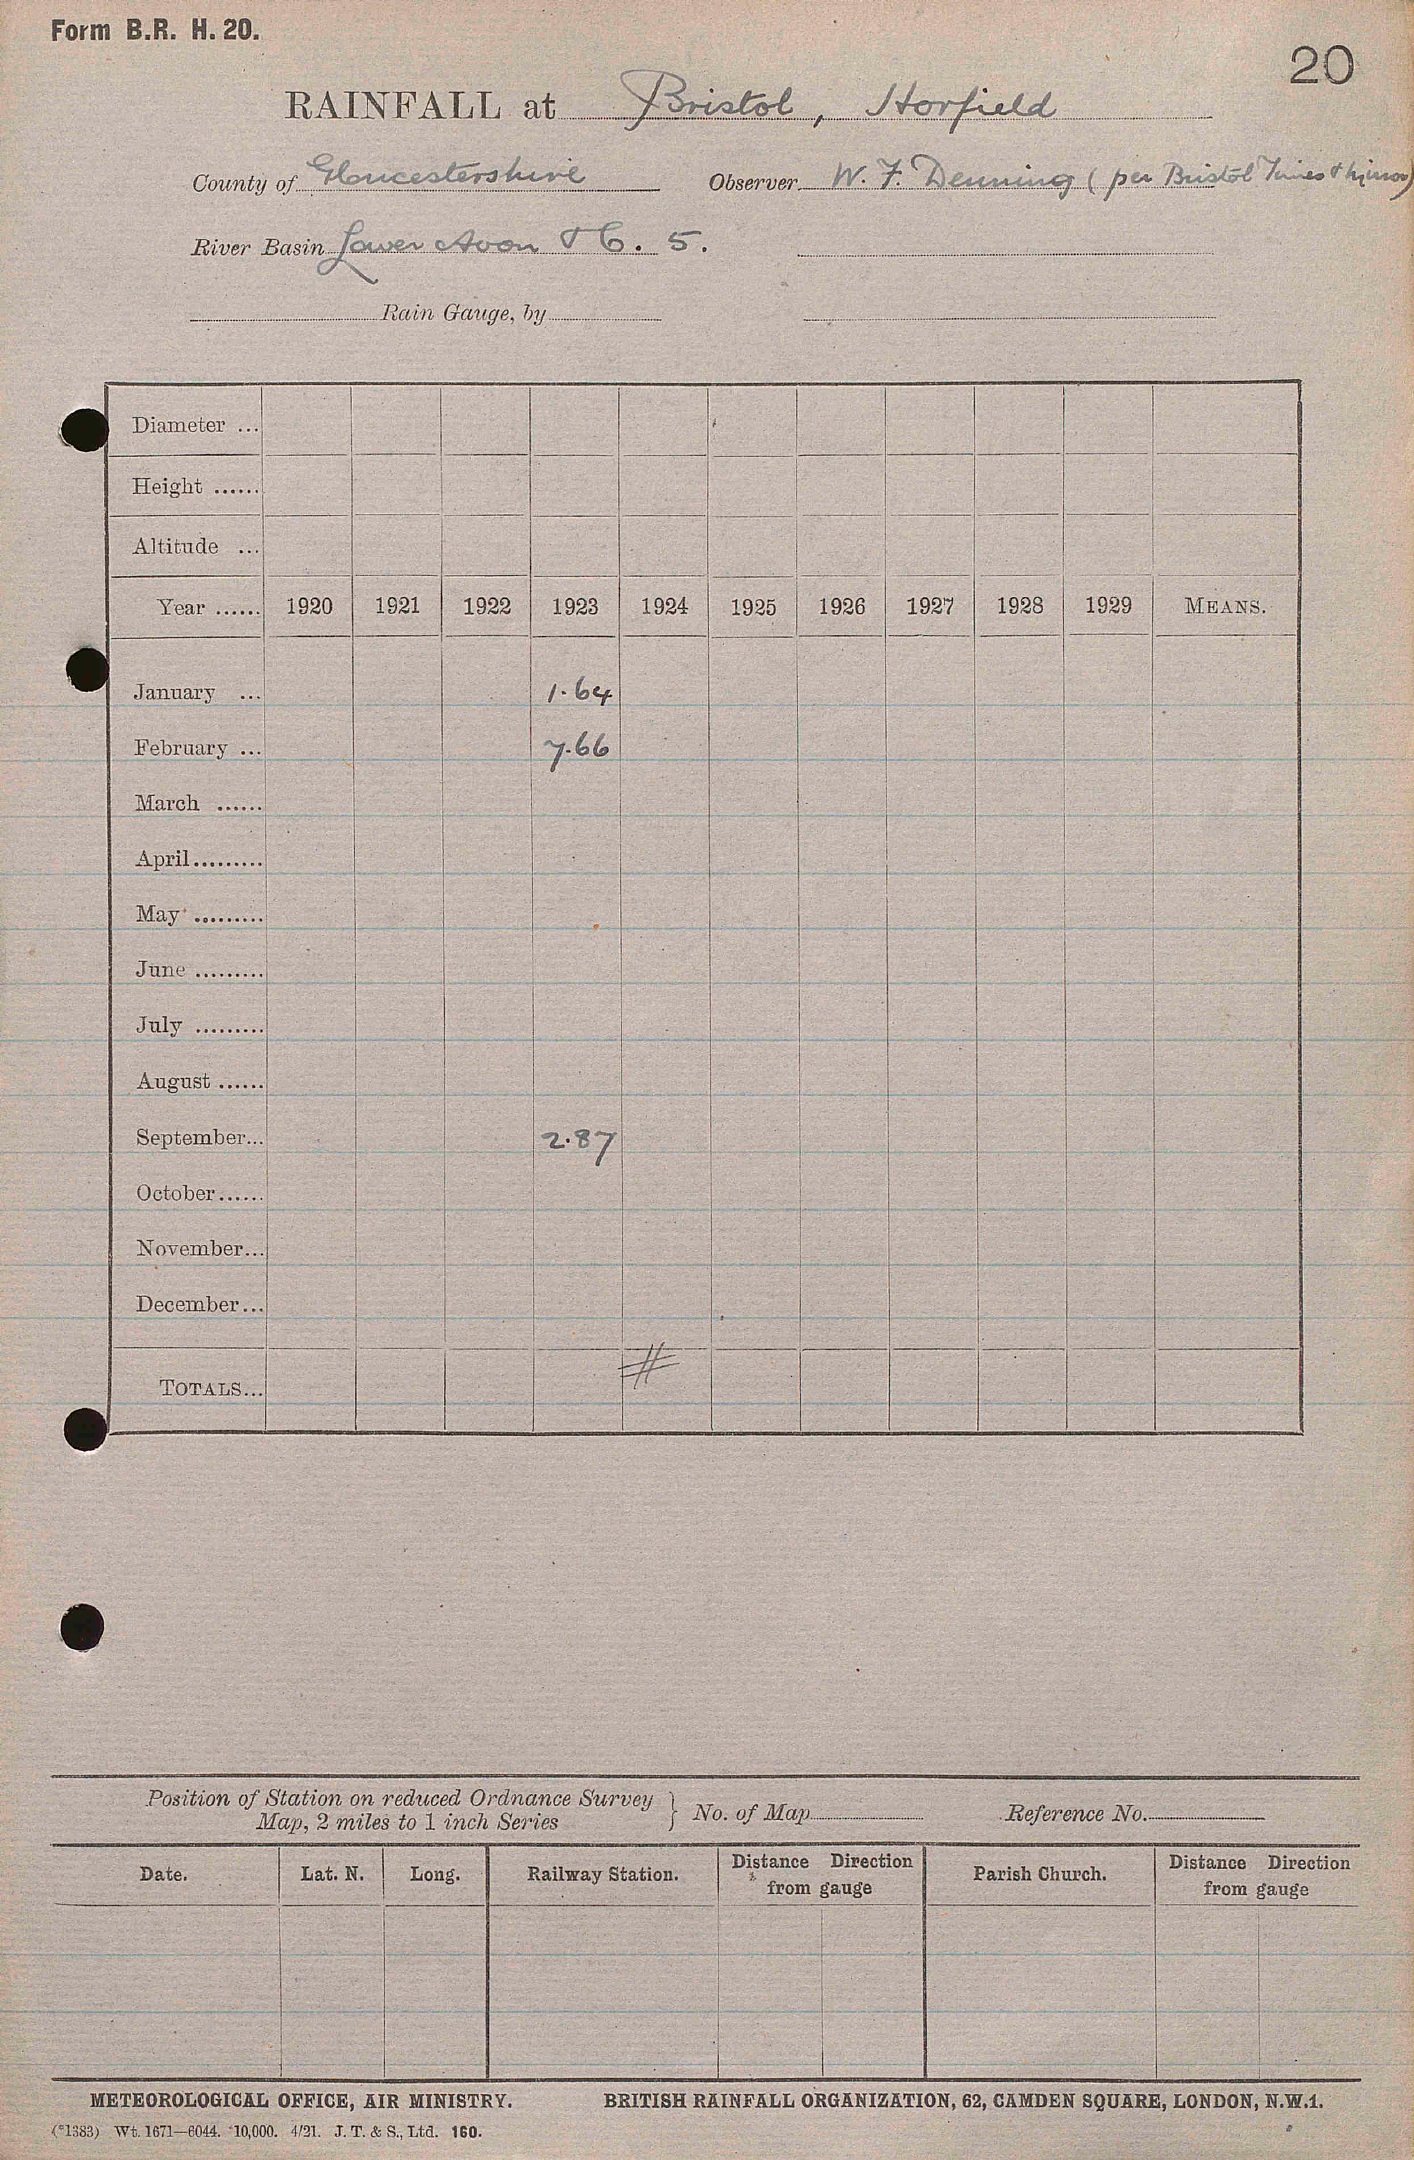 Form B.R. H. 20.
20
RAINFALL at Bristol, Horfield
County of Gloucestershire Observer W. F. Denning (per Bristol Times & Mirror)
River Basin Lower Avon & C. 5.
Rain Gauge, by
Diameter ...
Height ......
Altitude ...
Year ...... 1920 1921 1922 1923 1924 1925 1926 1927 1928 1929 MEANS.
January ... 1.64
February ... 7.66
March ......
April.........
May .........
June .........
July .........
August ......
September... 2.87
October......
November...
December...
#
TOTALS...
Position of Station on reduced Ordnance Survey
Map, 2 miles to 1 inch Series } No. of Map Reference No.
Date. Lat. N. Long. Railway Station. Distance Direction from gauge Parish Church. Distance Direction from gauge
METEOROLOGICAL OFFICE, AIR MINISTRY. BRITISH RAINFALL ORGANIZATION, 62, CAMDEN SQUARE, LONDON, N.W.1.
(*1383) Wt. 1671—6044. 10,000. 4/21. J. T. & S., Ltd. 160.